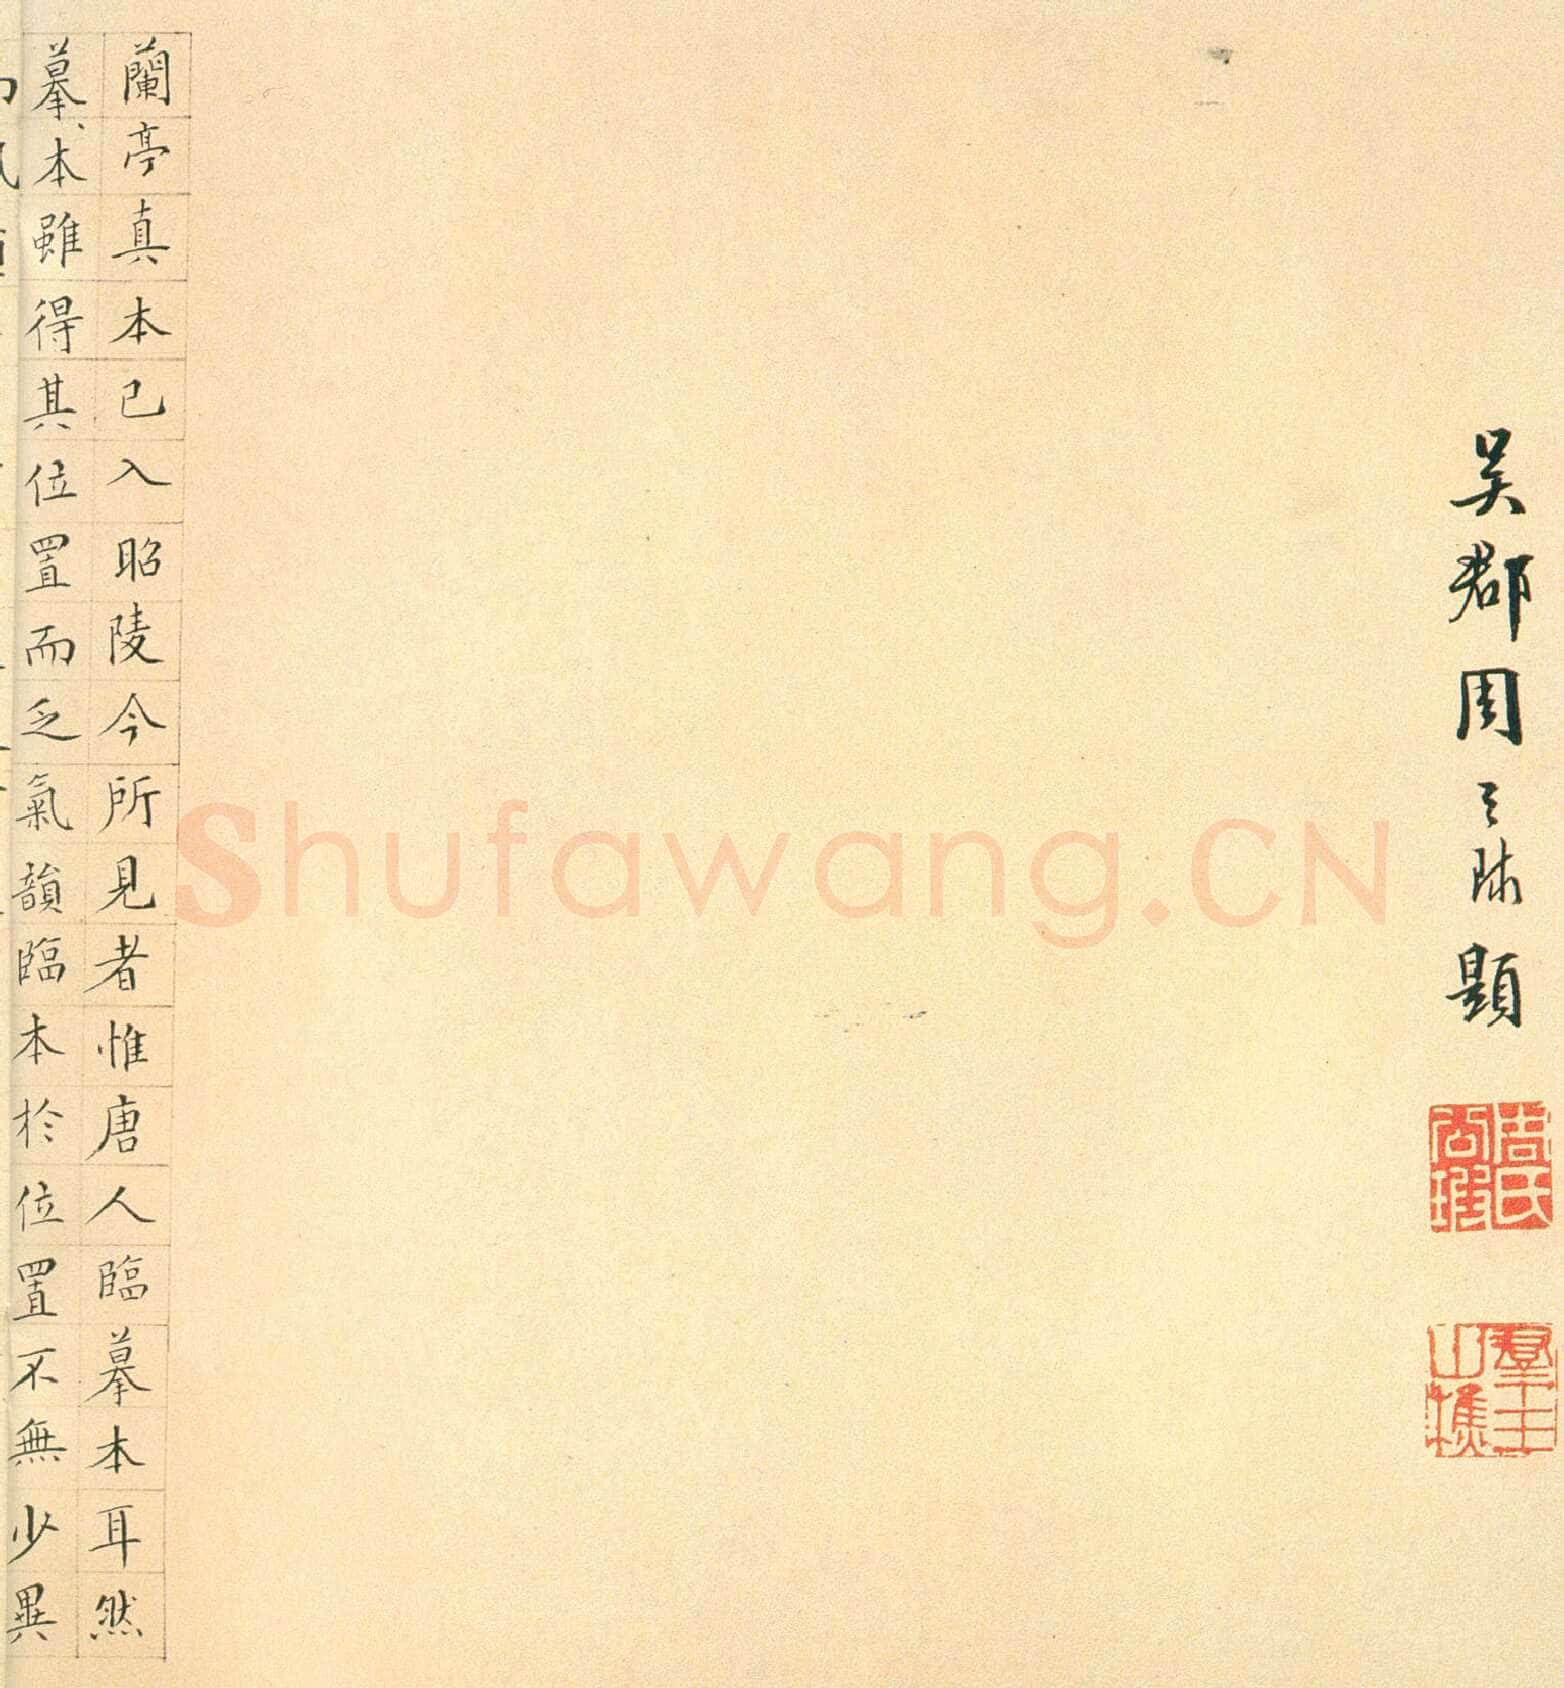 吳郡周天球題
周氏公瑕
羣玉山樵
蘭亭真本已入昭陵今所見者惟唐人臨摹本耳然
摹本雖得其位置而乏氣韻臨本於位置不無少異
Shufawang.CN